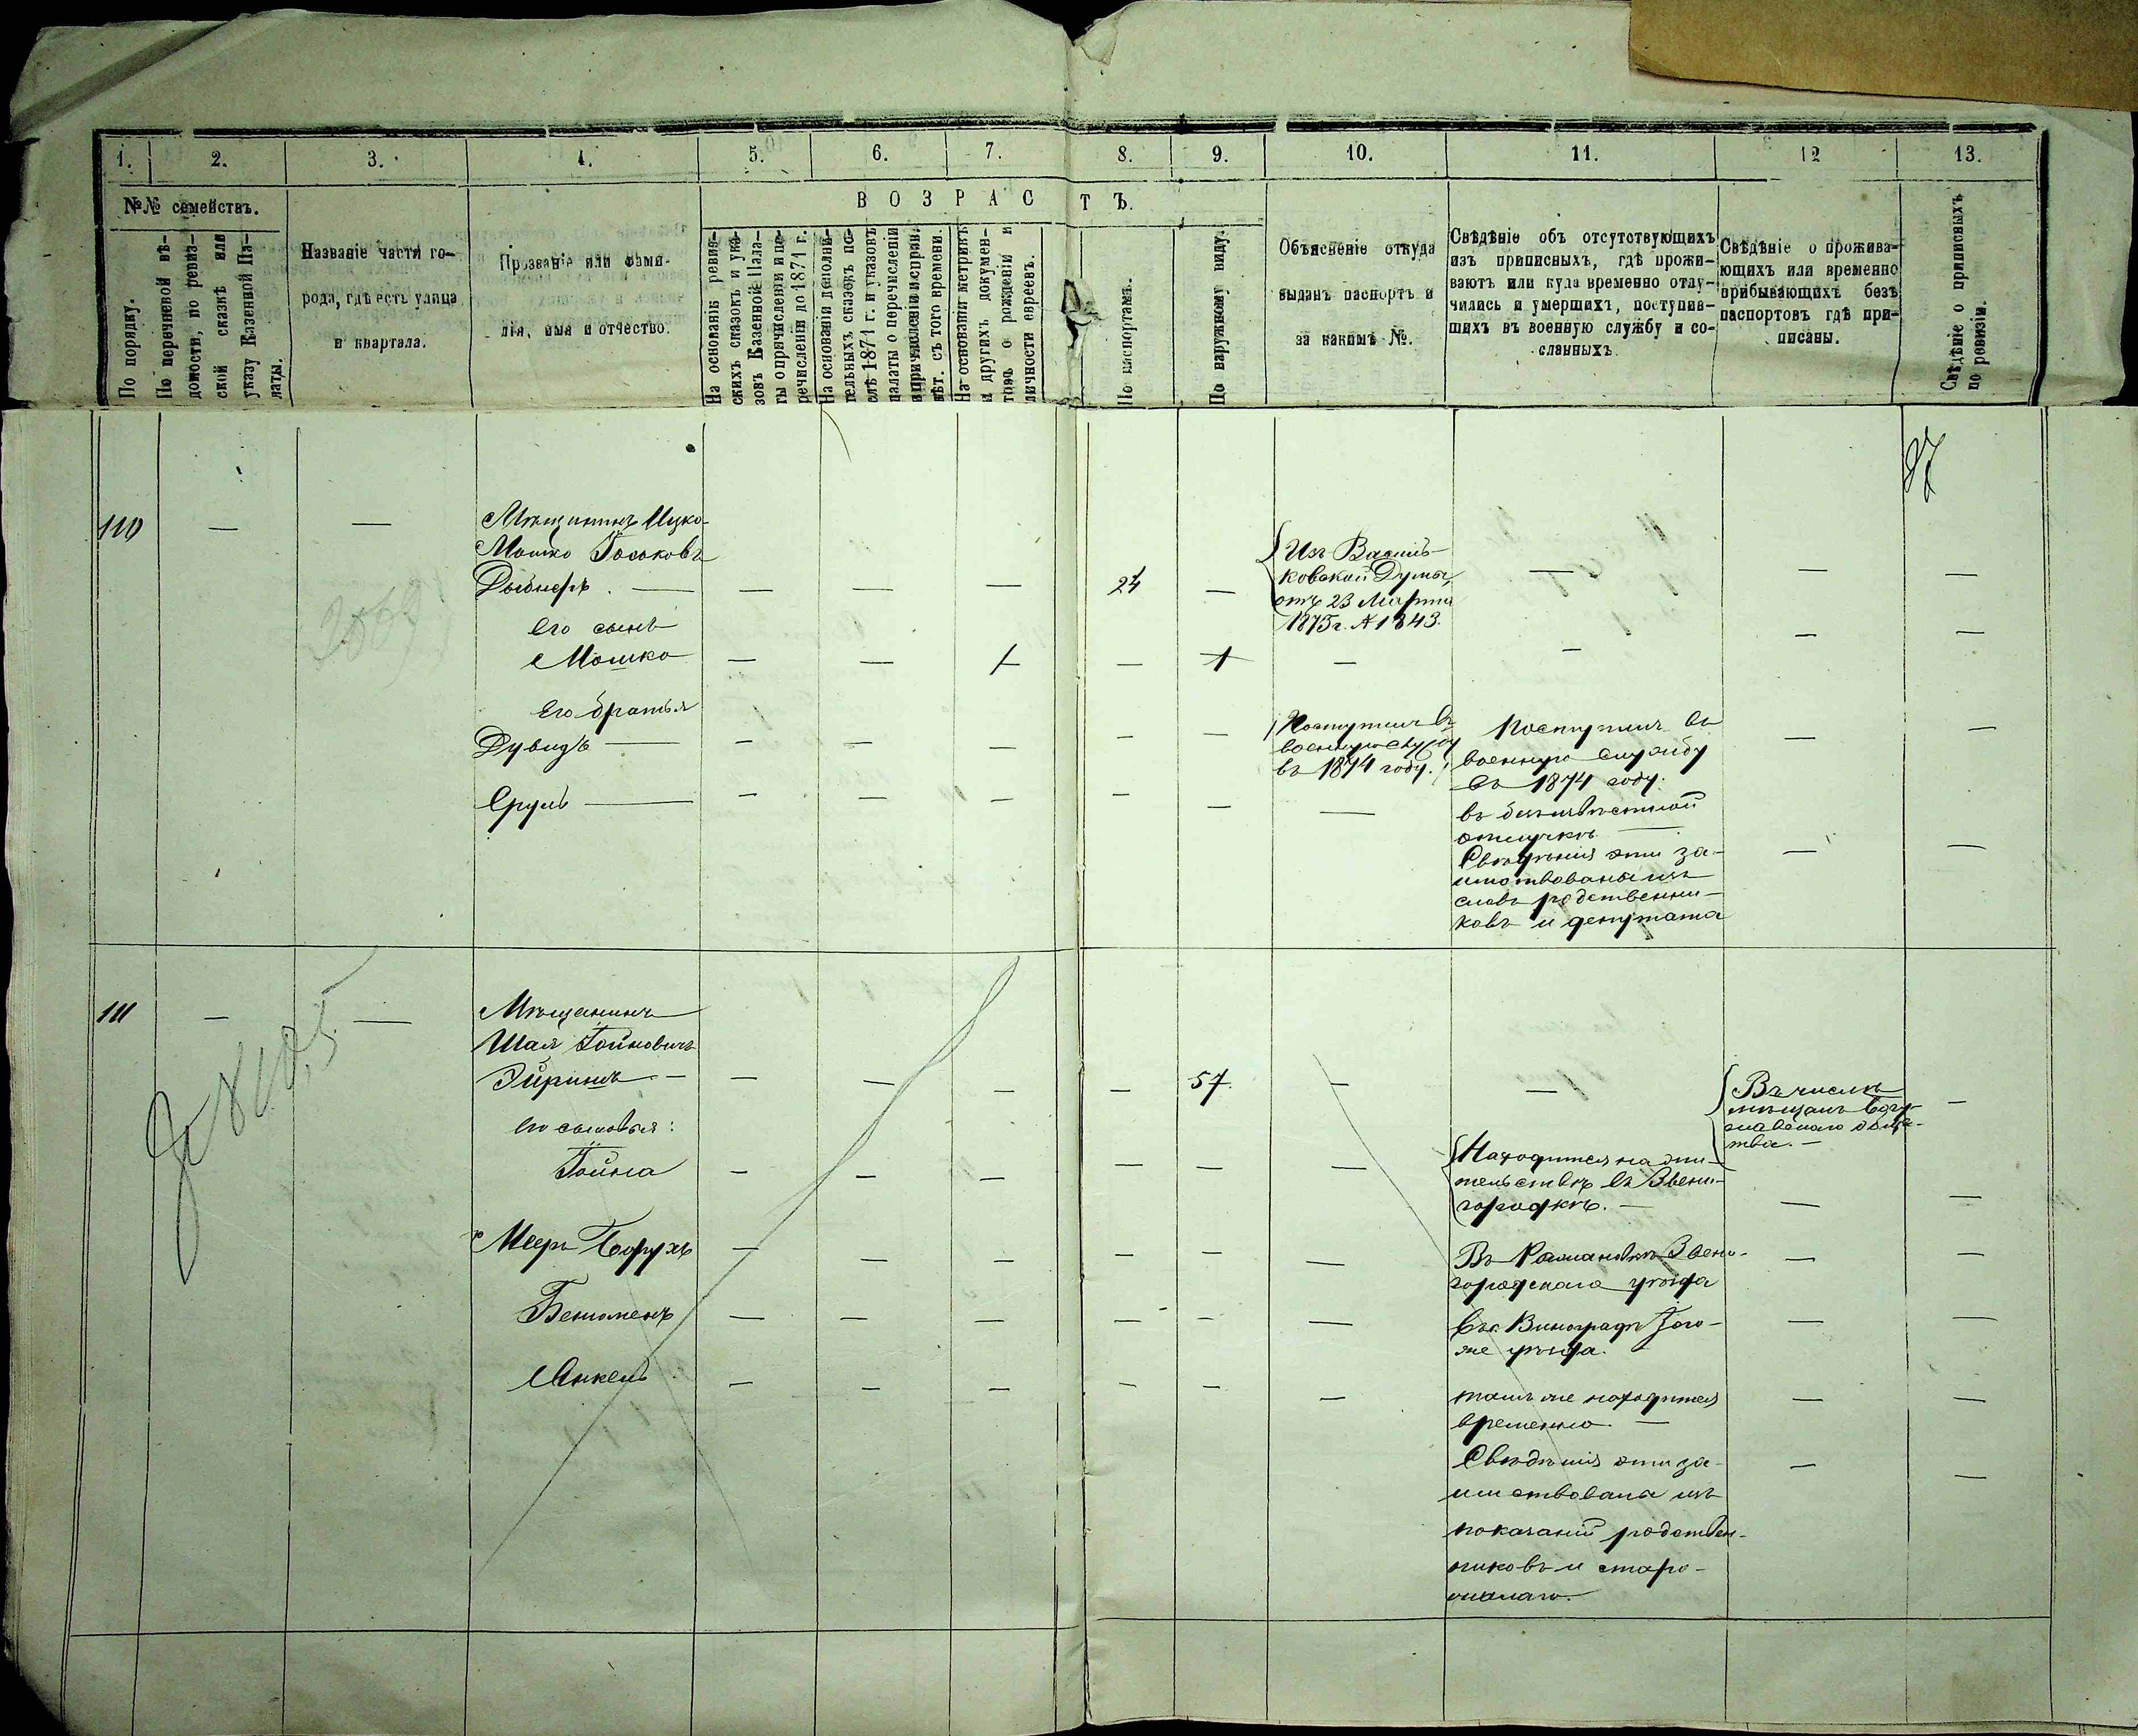 1. 2. 3. 4. 5. 6. 7. 8. 9. 10. 11. 12 13.
№№ семействъ.
По порядку.
По перечневой вѣ-
домости, по ревиз-
ской сказкѣ или
указу Казенной Па-
латы.
Названіе части го-
рода, гдѣ есть улица
и квартала.
Прозваніе или фами-
лія, имя и отчество.
ВОЗРАСТЪ.
На основаніи ревиз-
скихъ сказокъ и ука-
зовъ Казенной Пала-
ты о причисленіи и пе-
речисленіи до 1871 г.
На основаніи дополни-
тельныхъ сказокъ по-
слѣ 1871 г. и указовъ
палаты о перечисленіи
и причисленіи и справ.
лѣт. съ того времени.
На основаніи метрикъ
и другихъ докумен-
товъ о рожденіи и
личности евреевъ.
По паспортамъ.
По наружному виду.
Объясненіе откуда
выданъ паспортъ и
за какимъ №.
Свѣдѣніе объ отсутствующихъ
изъ приписныхъ, гдѣ прожи-
ваютъ или куда временно отлу-
чились и умершихъ, поступив-
шихъ въ военную службу и со-
сланныхъ.
Свѣдѣніе о прожива-
ющихъ или временно
прибывающихъ безъ
паспортовъ гдѣ при-
писаны.
Свѣдѣніе о приписныхъ
по ревизіи.
110 — —
Мѣщанинъ Ицко-
Мошко Іоськовъ
— — — 24 —
Изъ Василь-
ковской Думы
отъ 23 Марта
1875 г. № 1843.
— — —
Его сынъ
Мошко — — 1 — 1 — — — —
Его братья
Дувидъ — — — — — —
Поступилъ въ
военную службу
въ 1874 году.
Поступилъ въ
военную службу
въ 1874 году.
— —
Сруль — — — — — — —
въ безъизвѣстной
отлучкѣ. —
Свѣдѣнія эти за-
имствованы изъ
словъ родственни-
ковъ и депутата
— —
111 — —
Мѣщанинъ
Шая Іойновичъ
— — — — 57. — —
Въ числѣ
мѣщанъ Богу-
славскаго обще-
тва. —
—
Его сыновья:
Іойна — — — — — —
Находится на жи-
тельствѣ въ Звени-
городкѣ. —
— —
Меер Борухъ — — — — — —
Въ Романовкѣ Звени-
городскаго уѣзда
— —
Беньоменъ — — — — — —
Въ с. Виноградѣ того-
же уѣзда.
— —
Анкель — — — — — —
тамъ же находится
временно. —
— —
Свѣдѣнія эти за-
имствована изъ
показаній родствен-
никовъ и старо-
— —